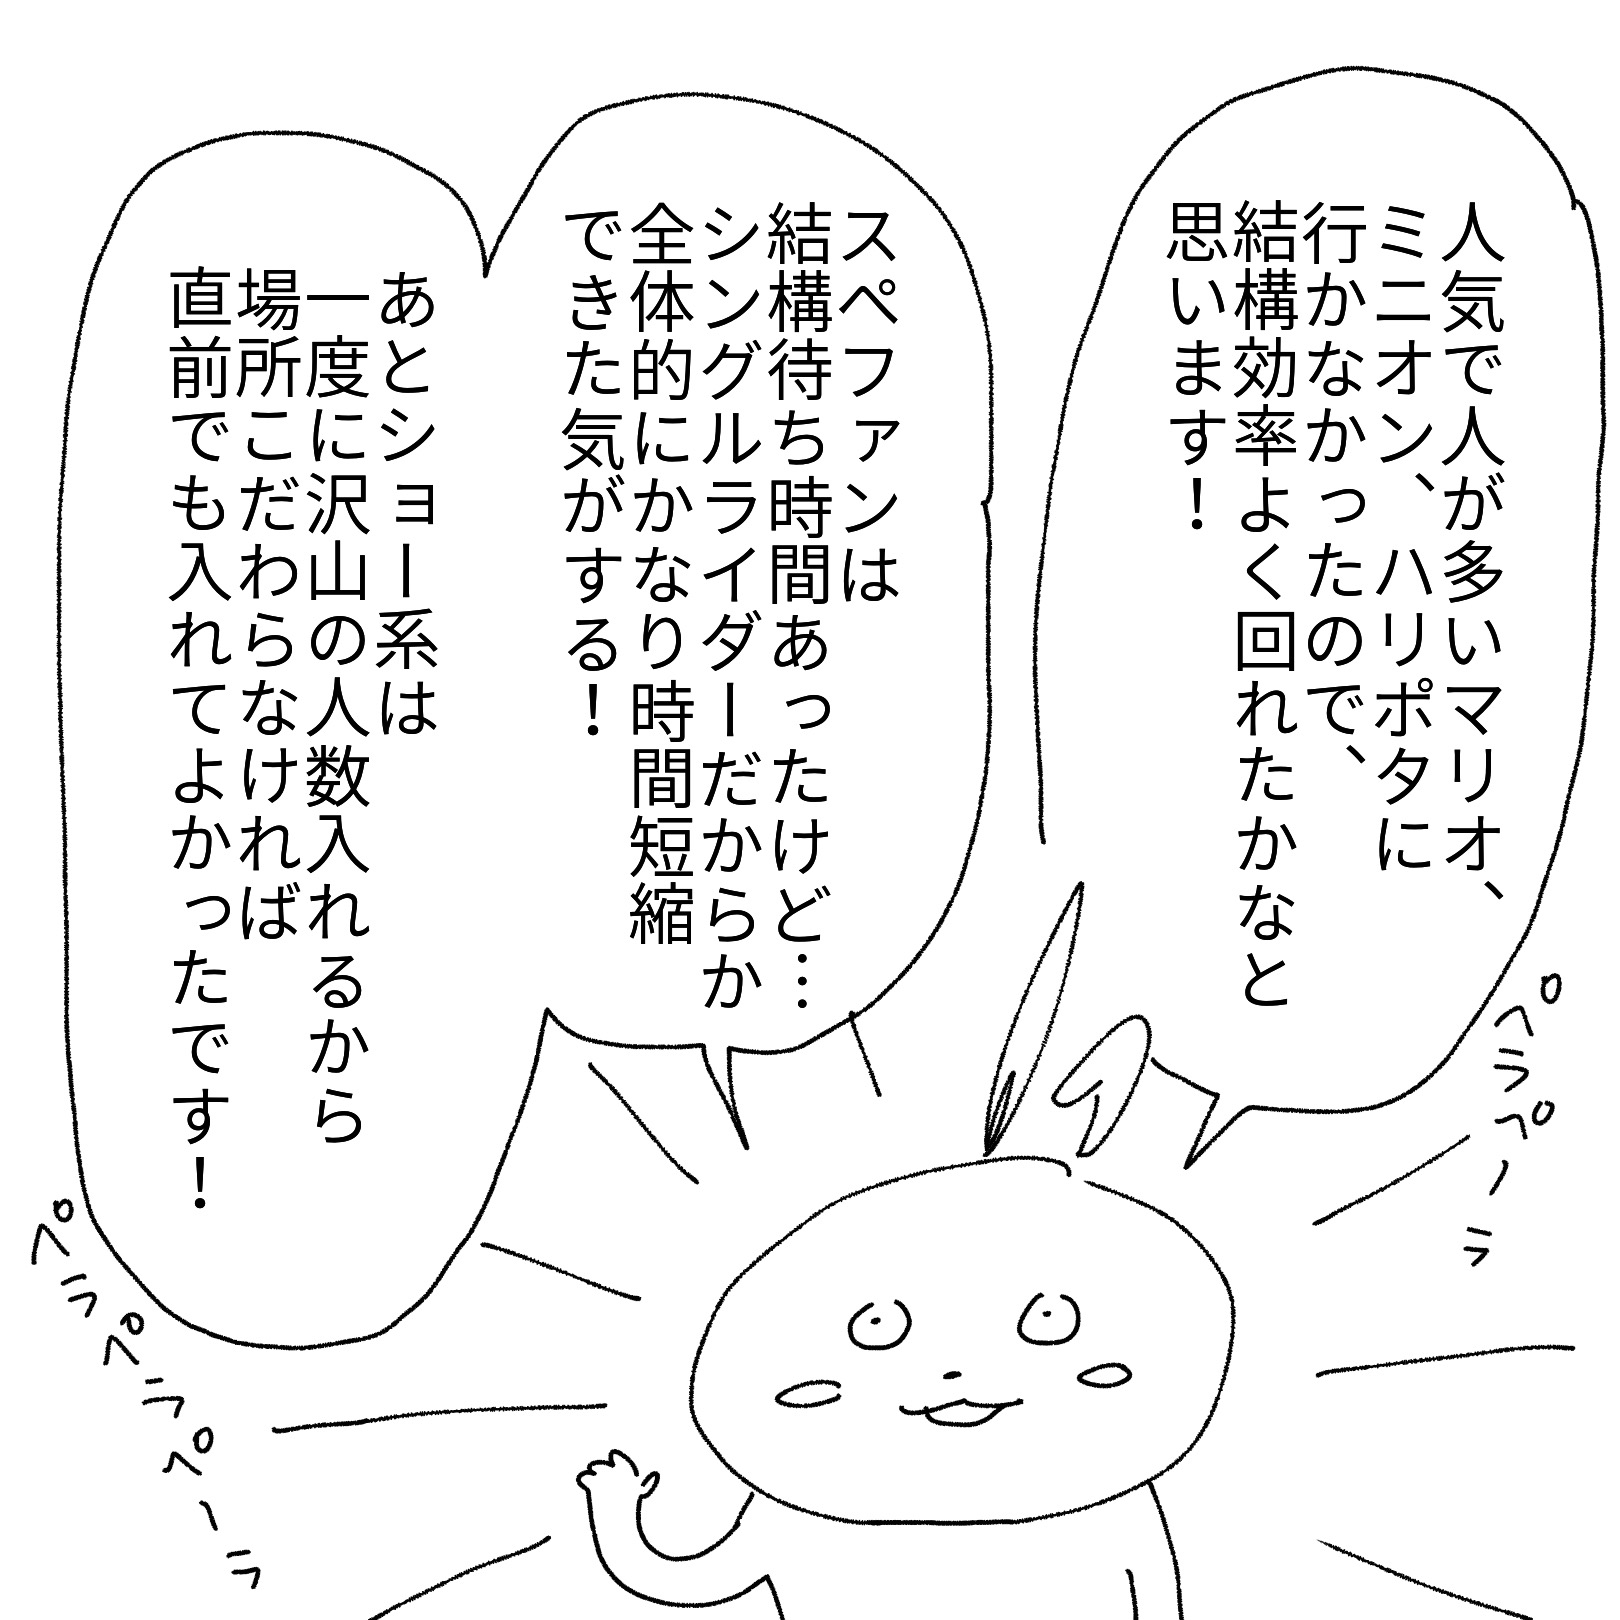 人気で人が多いマリオ、
ミニオン、ハリポタに
行かなかったので、
結構効率よく回れたかなと
思います！
スペファンは
結構待ち時間あったけど…
シングルライダーだからか
全体的にかなり時間短縮
できた気がする！
あとショー系は
一度に沢山の人数入れるから
場所こだわらなければ
直前でも入れてよかったです！
ペラペーラ
ペラペラペーラ